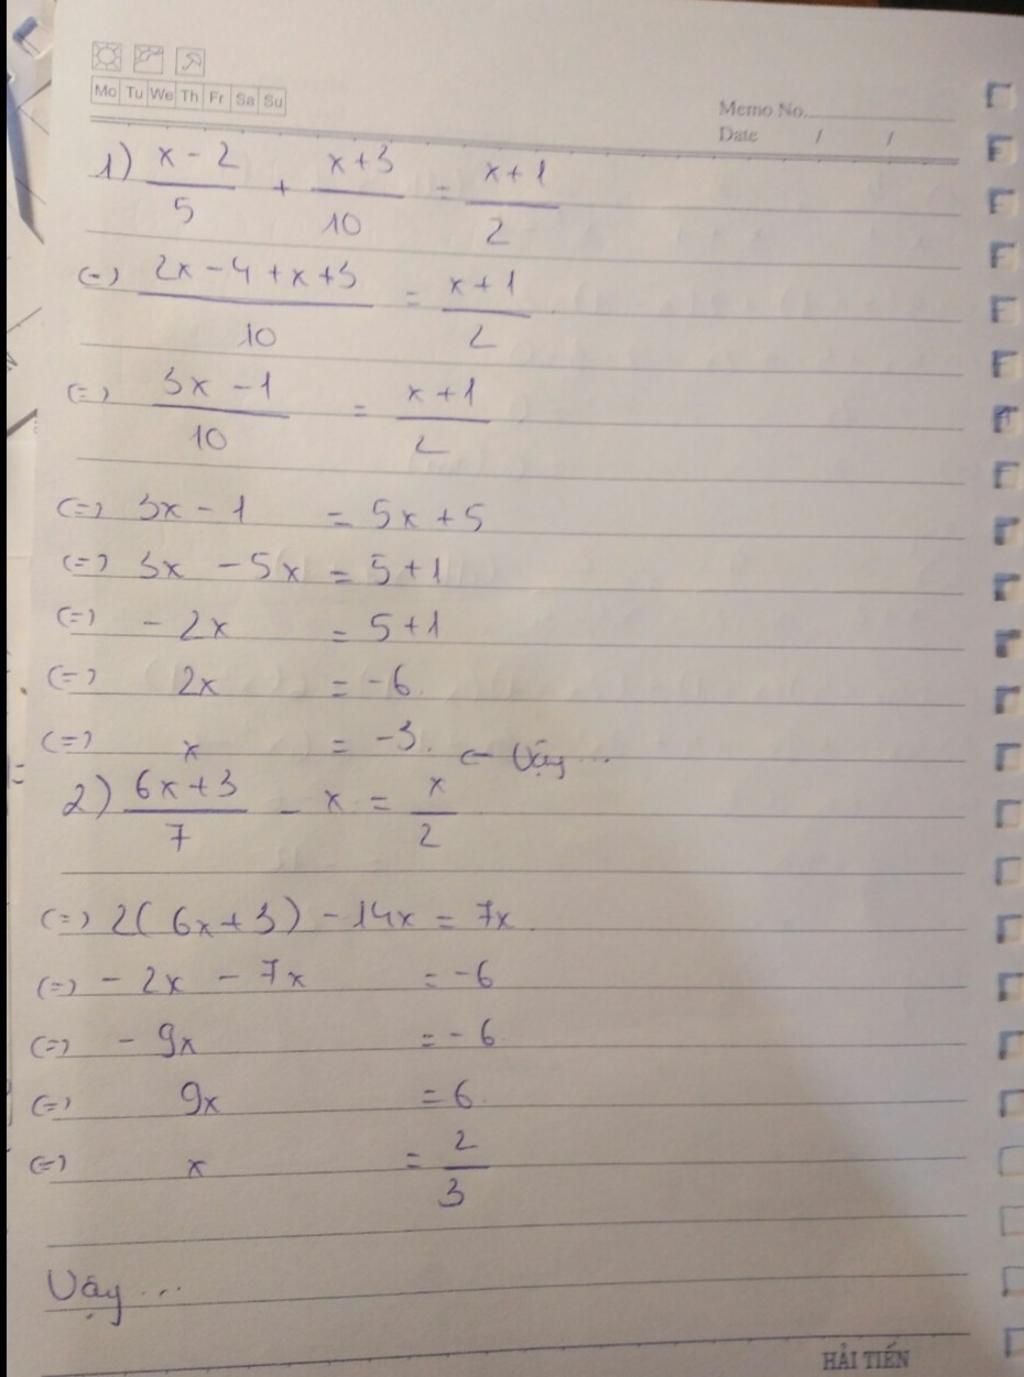 Mo Tu We Th Fr Sa Su
Memo No.
Date / /
1) (x - 2)/5 + (x+3)/10 = (x+1)/2
(=) (2x - 4 + x + 3)/10 = (x+1)/2
(=) (3x - 1)/10 = (x+1)/2
(=) 3x - 1 = 5x + 5
(=) 3x - 5x = 5+1
(=) - 2x = 5+1
(=) 2x = -6
(=) x = -3. ← Vậy ...
2) (6x+3)/7 - x = x/2
(=) 2(6x+3) - 14x = 7x.
(=) - 2x - 7x = -6
(=) - 9x = - 6
(=) 9x = 6
(=) x = 2/3
Vậy ...
HẢI TIẾN